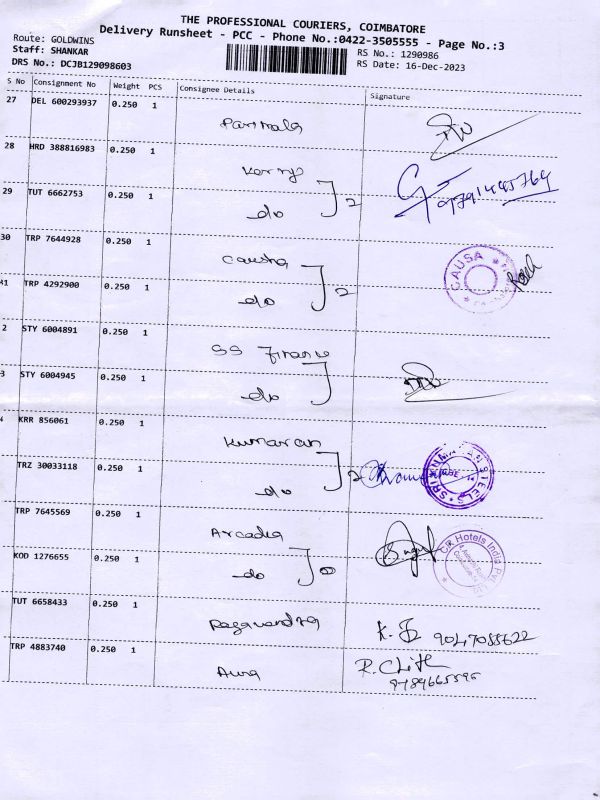 THE PROFESSIONAL COURIERS, COIMBATORE
Delivery Runsheet - PCC - Phone No.:0422-3505555 - Page No.:3
Route: GOLDWINS
RS No.: 1290986
Staff: SHANKAR
RS Date: 16-Dec-2023
DRS No.: DCJB129098603
S No Consignment No Weight PCS Consignee Details Signature
27 DEL 600293937 0.250 1
Parimala
28 HRD 388816983 0.250 1
29 TUT 6662753 0.250 1
do 2
9791445769
30 TRP 7644928 0.250 1
CAUSA
31 TRP 4292900 0.250 1
do 2
2 STY 6004891 0.250 1
SS Finance
3 STY 6004945 0.250 1
do
4 KRR 856061 0.250 1
Kumaran
TRZ 30033118 0.250 1
do 2
STEELS
TRP 7645569 0.250 1
Arcadia
CR Hotels India Pvt
KOD 1276655 0.250 1
do
TUT 6658433 0.250 1
Ragavendra
K. 9047055622
TRP 4883740 0.250 1
Aura
R. Chith